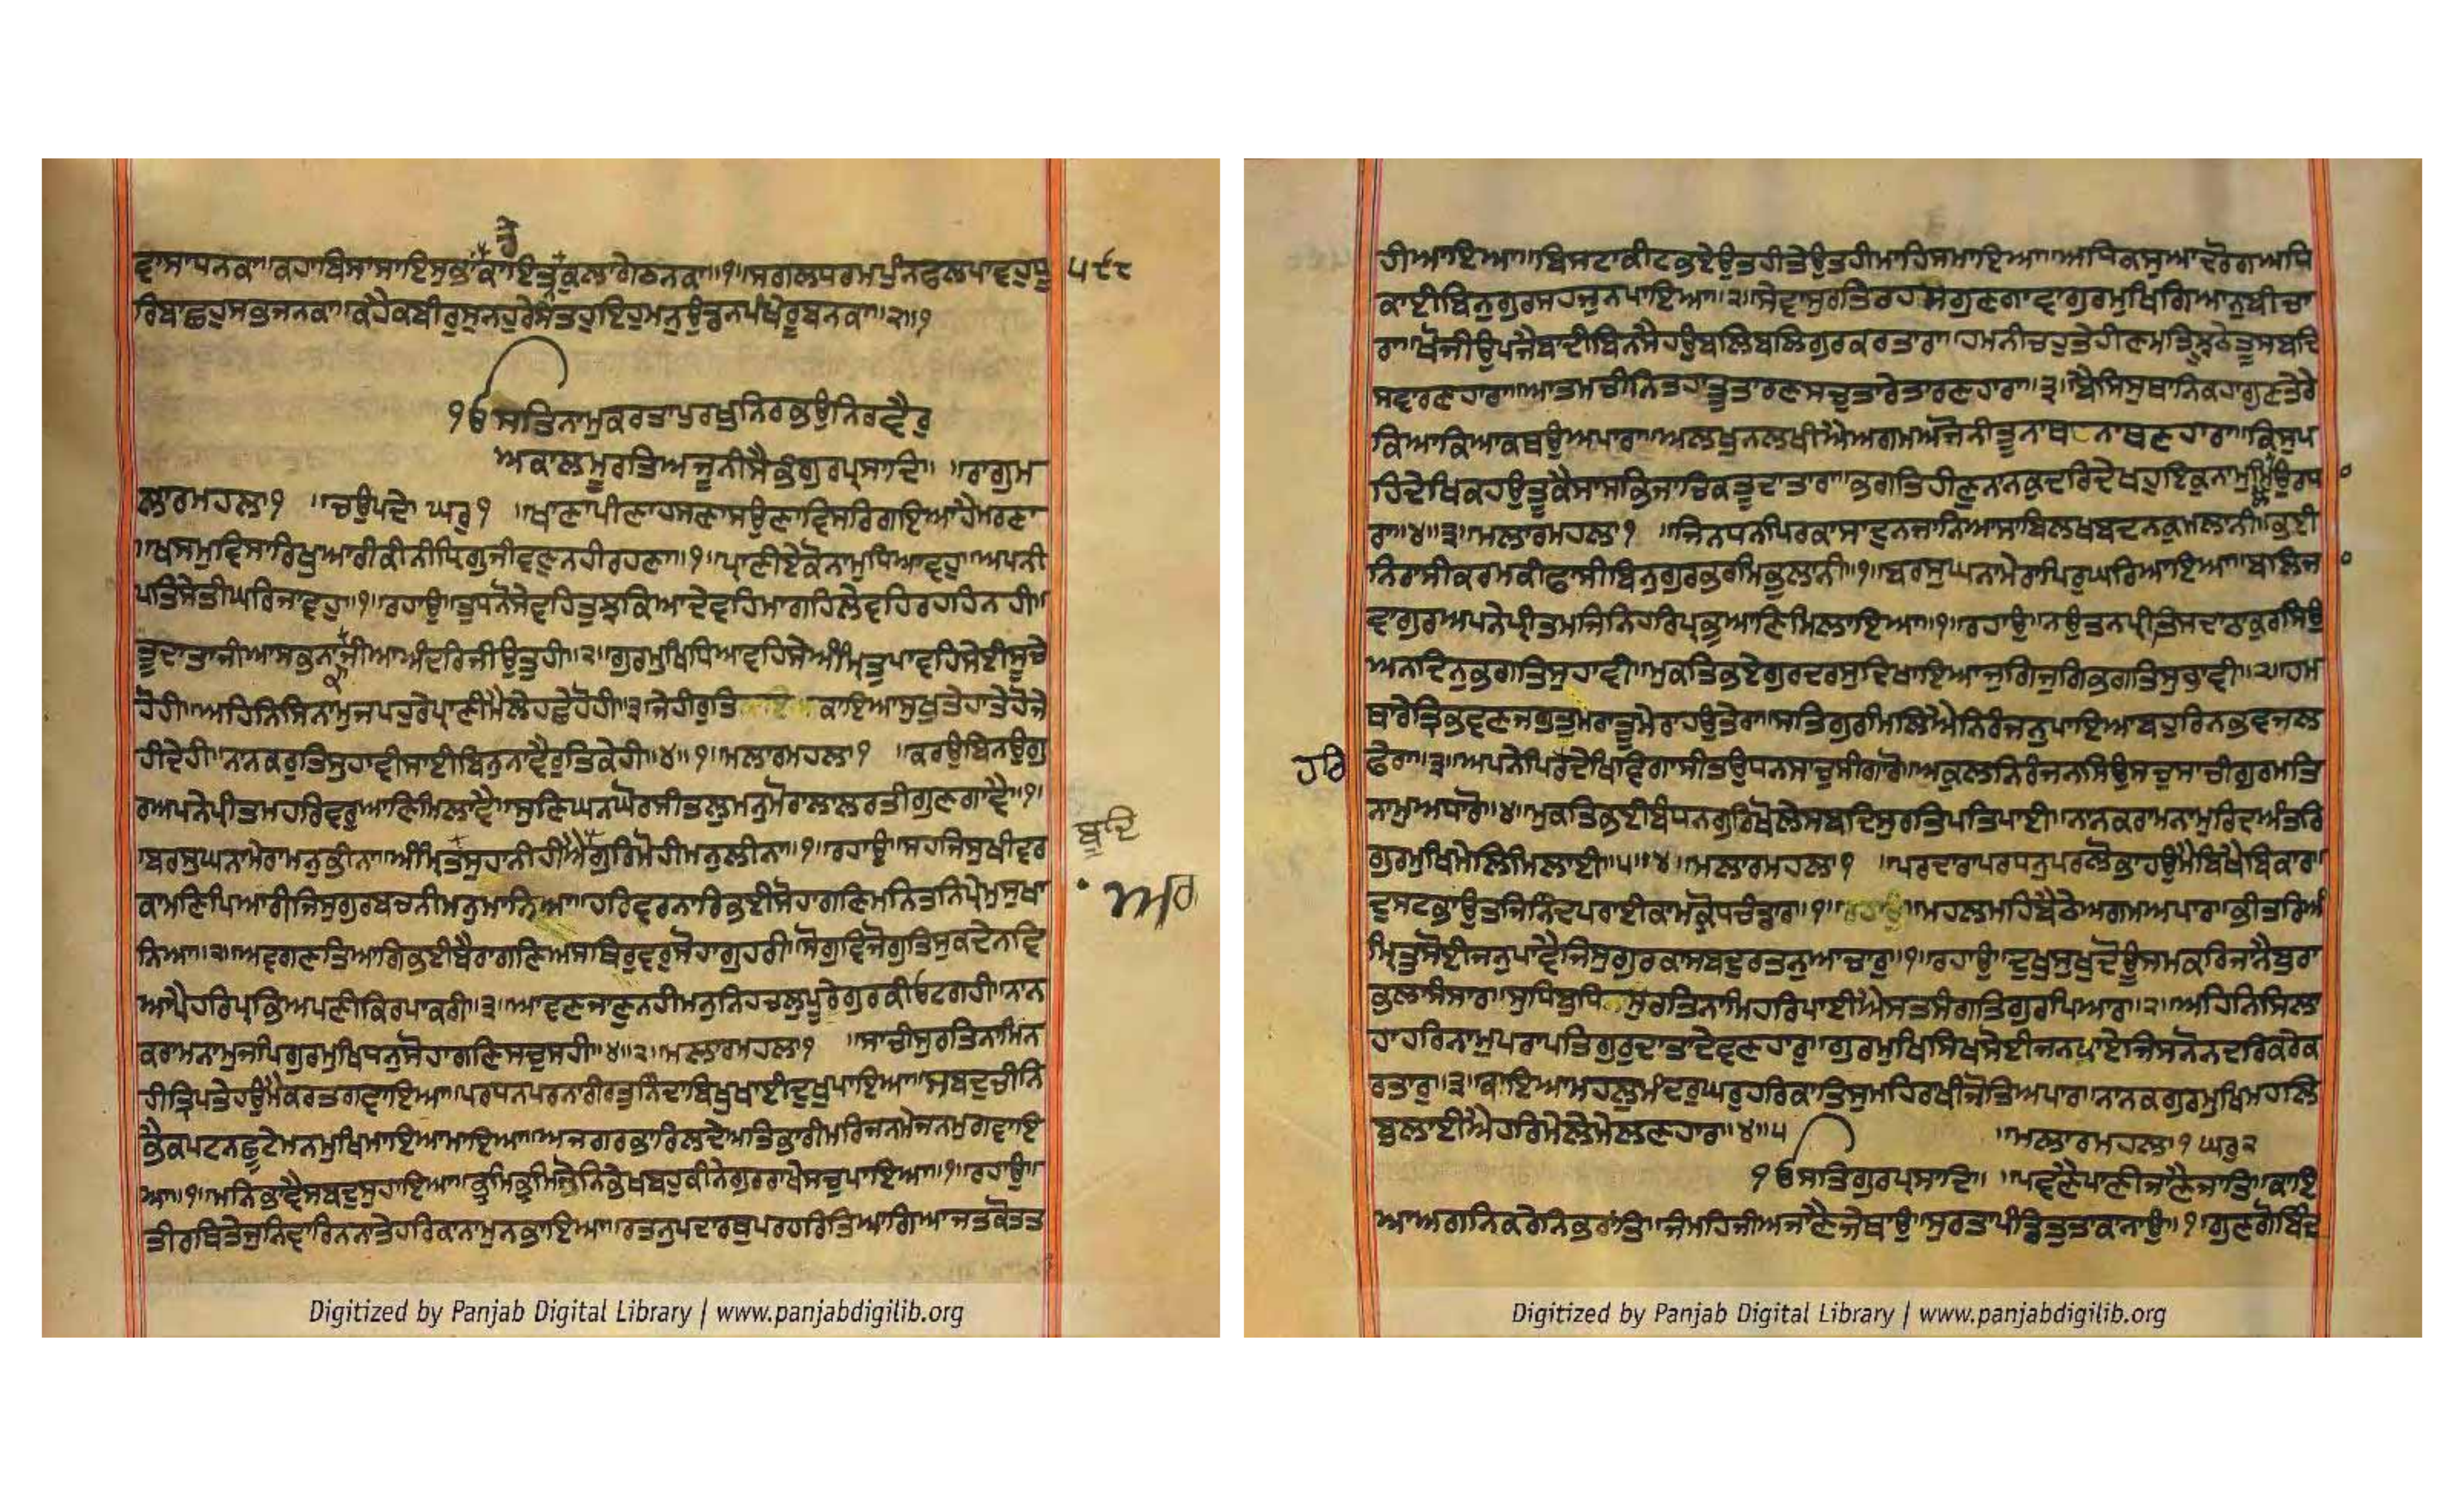 ੫੮੮
ਰਿਬਾਛਹੁਸਕਤਜਨਕਾ॥ਕਹੈਕਬੀਰੁਸੁਨਹੁਰੇਸੰਤਹੁਇਹੁਮਨੁਉਡਨਪੰਖੇਰੂਬਨਕਾ॥੨॥੧
੧ਓਸਤਿਨਾਮੁਕਰਤਾਪੁਰਖੁਨਿਰਭਉਨਿਰਵੈਰੁ
ਅਕਾਲਮੂਰਤਿਅਜੂਨੀਸੈਭੰਗੁਰਪ੍ਰਸਾਦਿ॥ ॥ਰਾਗੁਮ
ਲਾਰਮਹਲਾ੧ ॥ਚਉਪਦੇ ਘਰੁ੧ ॥ਖਾਣਾਪੀਣਾਹਸਣਾਸਉਣਾਵਿਸਰਿਗਇਆਹੈਮਰਣਾ
॥ਖਸਮੁਵਿਸਾਰਿਖੁਆਰੀਕੀਨੀਧ੍ਰਿਗੁਜੀਵਣੁਨਹੀਰਹਣਾ॥੧॥ਪ੍ਰਾਣੀਏਕੋਨਾਮੁਧਿਆਵਹੁ॥ਅਪਨੀ
ਪਤਿਸੇਤੀਘਰਿਜਾਵਹੁ॥੧॥ਰਹਾਉ॥ਤੁਧਨੋਸੇਵਹਿਤੁਝੁਕਿਆਦੇਵਹਿਮਾਗਹਿਲੇਵਹਿਰਹਹਿਨਹੀ॥
ਤੂਦਾਤਾਜੀਆਸਭਨਾਜੀਆਅੰਦਰਿਜੀਉਤੁਹੀ॥੨॥ਗੁਰਮੁਖਿਧਿਆਵਹਿਸੇਅੰਮ੍ਰਿਤੁਪਾਵਹਿਸੇਈਸੂਚੇ
ਹੋਹੀ॥ਅਹਿਨਿਸਿਨਾਮੁਜਪਹੁਰੇਪ੍ਰਾਣੀਮੈਲੇਹਛੇਹੋਹੀ॥੩॥ਜੇਹੀਰੁਤਿਕਾਇਆਸੁਖੁਤੇਹਾਤੇਹੋਜੇ
ਹੀਦੇਹੀ॥ਨਨਕਰੁਤਿਸੁਹਾਵੀਸਾਈਬਿਨੁਨਾਵੈਰੁਤਿਕੇਹੀ॥੪॥੧॥ਮਲਾਰਮਹਲਾ੧ ॥ਕਰਉਬਿਨਉਗੁ
ਰਅਪਨੇਪ੍ਰੀਤਮਹਰਿਵਰੁਆਣਿਮਿਲਾਵੈ॥ਸੁਣਿਘਨਘੋਰਸੀਤਲੁਮਨੁਮੋਰਾਲਾਲਰਤੀਗੁਣਗਾਵੈ॥੧॥
ਬਰਸੁਘਨਾਮੇਰਾਮਨੁਭੀਨਾ॥ਅੰਮ੍ਰਿਤਸੁਹਾਨੀਹੀਐਗੁਰਿਮੋਹੀਮਨੁਲੀਨਾ॥੧॥ਰਹਾਉ॥ਸਹਜਿਸੁਖੀਵਰ
ਕਾਮਣਿਪਿਆਰੀਜਿਸੁਗੁਰਬਚਨੀਮਨੁਮਾਨਿਆ॥ਹਰਿਵਰਨਾਰਿਭਈਸੋਹਾਗਣਿਮਨਿਤਨਿਪ੍ਰੇਮੁਸੁਖਾ
ਨਿਆ॥੨॥ਅਵਗਣਤਿਆਗਿਭਈਬੈਰਾਗਣਿਅਸਥਿਰੁਵਰੁਸੋਹਾਗੁਹਰੀ॥ਸੋਗੁਵਿਜੋਗੁਤਿਸੁਕਦੇਨਵਿ
ਆਪੈਹਰਿਪ੍ਰਭਿਅਪਣੀਕਿਰਪਾਕਰੀ॥੩॥ਆਵਣਜਾਣੁਨਹੀਮਨੁਨਿਹਚਲੁਪੂਰੇਗੁਰਕੀਓਟਗਹੀ॥ਨਾਨ
ਕਰਾਮਨਾਮੁਜਪਿਗੁਰਮੁਖਿਧਨੁਸੋਹਾਗਣਿਸਚੁਸਹੀ॥੪॥੨॥ਮਲਾਰਮਹਲਾ੧ ॥ਸਾਚੀਸੁਰਤਿਨਾਮਿਨ
ਹੀਤ੍ਰਿਪਤੇਹਉਮੈਕਰਤਗਵਾਇਆ॥ਪਰਧਨਪਰਨਾਰੀਰਤੁਨਿੰਦਾਬਿਖੁਖਾਈਦੁਖੁਪਾਇਆ॥ਸਬਦੁਚੀਨਿ
ਭੈਕਪਟਨਛੂਟੇਮਨਮੁਖਿਮਾਇਆਮਾਇਆ॥ਅਜਗਰਭਾਰਿਲਦੇਅਤਿਭਾਰੀਮਰਿਜਨਮੇਜਨਮੁਗਵਾਇ
ਆ॥੧॥ਮਨਿਭਾਵੈਸਬਦੁਸੁਹਾਇਆ॥ਭ੍ਰਮਿਭ੍ਰਮਿਜੋਨਿਭੇਖਬਹੁਕੀਨੇਗੁਰਰਾਖੇਸਚੁਪਾਇਆ॥੧॥ਰਹਾਉ॥
ਤੀਰਥਿਤੇਜੁਨਿਵਾਰਿਨਨਾਤੇਹਰਿਕਾਨਾਮੁਨਭਾਇਆ॥ਰਤਨੁਪਦਾਰਥੁਪਰਹਰਿਤਿਆਗਿਆਜਤਕੋਤਤ
Digitized by Panjab Digital Library | www.panjabdigilib.org
ਹੀਆਇਆ॥ਬਿਸਟਾਕੀਟਭਏਉਤਹੀਤੇਉਤਹੀਮਾਹਿਸਮਾਇਆ॥ਅਧਿਕਸੁਆਦਰੋਗਅਧਿ
ਕਾਈਬਿਨੁਗੁਰਸਹਜੁਨਪਾਇਆ॥੨॥ਸੇਵਾਸੁਰਤਿਰਹਸਗੁਣਗਾਵਾਗੁਰਮੁਖਿਗਿਆਨੁਬੀਚਾ
ਰਾ॥ਖੋਜੀਉਪਜੈਬਾਦੀਬਿਨਸੈਹਉਬਲਿਬਲਿਗੁਰਕਰਤਾਰਾ॥ਹਮਨੀਚਹੁਤੇਹੀਣਮਤਿਝੂਠੇਤੂਸਬਦਿ
ਸਵਾਰਣਹਾਰਾ॥ਆਤਮਚੀਨਿਤਹਾਤੂਤਾਰਣਸਚੁਤਾਰੇਤਾਰਣਹਾਰਾ॥੩॥ਬੈਸਿਸੁਥਾਨਿਕਹਾਗੁਣਤੇਰੇ
ਕਿਆਕਿਆਕਥਉਅਪਾਰਾ॥ਅਲਖੁਨਲਖੀਐਅਗਮਅਜੋਨੀਤੂਨਾਥਨਾਥਣਹਾਰਾ॥ਕਿਸੁਪ
ਹਿਦੇਖਿਕਹਉਤੂਕੈਸਾਸਭਿਜਾਚਿਕਤੂਦਾਤਾਰਾ॥ਭਗਤਿਹੀਣੁਨਨਕੁਦਰਿਦੇਖਹੁਇਕੁਨਾਮੁਮਿਲੈਉਰਧਾ
ਰਾ॥੪॥੩॥ਮਲਾਰਮਹਲਾ੧ ॥ਜਿਨਧਨਪਿਰਕਾਸਾਦੁਨਜਾਨਿਆਸਾਬਿਲਖਬਦਨਕੁਮਲਾਨੀ॥ਭਈ
ਨਿਰਾਸੀਕਰਮਕੀਫਾਸੀਬਿਨੁਗੁਰਭਰਮਿਭੁਲਾਨੀ॥੧॥ਬਰਸੁਘਨਾਮੇਰਾਪਿਰੁਘਰਿਆਇਆ॥ਬਲਿਜ
ਵਾਗੁਰਅਪਨੇਪ੍ਰੀਤਮਜਿਨਿਹਰਿਪ੍ਰਭੁਆਣਿਮਿਲਾਇਆ॥੧॥ਰਹਾਉ॥ਨਉਤਨਪ੍ਰੀਤਿਸਦਾਠਾਕੁਰਸਿਉ
ਅਨਦਿਨੁਭਗਤਿਸੁਹਾਵੀ॥ਮੁਕਤਿਭਏਗੁਰਦਰਸੁਦਿਖਾਇਆਜੁਗਿਜੁਗਿਭਗਤਿਸੁਭਾਵੀ॥੨॥ਹਮ
ਥਾਰੇਤ੍ਰਿਭਵਣਜਗੁਤੁਮਰਾਤੂਮੇਰਾਹਉਤੇਰਾ॥ਸਤਿਗੁਰਿਮਿਲਿਐਨਿਰੰਜਨੁਪਾਇਆਬਹੁਰਿਨਭਵਜਲ
ਫੇਰਾ॥੩॥ਅਪਨੇਪਿਰਦੇਖਿਵਿਗਾਸੀਤਉਧਨਸਾਚੁਸੀਗਾਰੋ॥ਅਕੁਲਨਿਰੰਜਨਸਿਉਸਚੁਸਾਚੀਗੁਰਮਤਿ
ਨਾਮੁਅਧਾਰੋ॥੪॥ਮੁਕਤਿਭਈਬੰਧਨਗੁਰਿਖੋਲੇਸਬਦਿਸੁਰਤਿਪਤਿਪਾਈ॥ਨਾਨਕਰਾਮਨਾਮੁਰਿਦਾਅੰਤਰਿ
ਗੁਰਮੁਖਿਮੇਲਿਮਿਲਾਈ॥੫॥੪॥ਮਲਾਰਮਹਲਾ੧ ॥ਪਰਦਾਰਾਪਰਧਨੁਪਰਲੋਭਾਹਉਮੈਬਿਖੈਬਿਕਾਰਾ॥
ਦੁਸਟਭਾਉਤਜਿਨਿੰਦਪਰਾਈਕਾਮਕ੍ਰੋਧਚੰਡਾਰਾ॥੧॥ਮਹਲਮਹਿਬੈਠੇਅਗਮਅਪਾਰਾ॥ਭੀਤਰਿਅੰ
ਮ੍ਰਿਤੁਸੋਈਜਨੁਪਾਵੈਜਿਸੁਗੁਰਕਾਸਬਦੁਰਤਨੁਆਚਾਰੁ॥੧॥ਰਹਾਉ॥ਦੁਖੁਸੁਖੁਦੋਊਸਮਕਰਿਜਾਨੈਬੁਰਾ
ਭਲਾਸੰਸਾਰ॥ਸੁਧਿਬੁਧਿਸੁਰਤਿਨਾਮਿਹਰਿਪਾਈਐਸਤਸੰਗਤਿਗੁਰਪਿਆਰ॥੨॥ਅਹਿਨਿਸਿਲਾ
ਹਾਹਰਿਨਾਮੁਪਰਾਪਤਿਗੁਰੁਦਾਤਾਦੇਵਣਹਾਰੁ॥ਗੁਰਮੁਖਿਸਿਖਸੋਈਜਨਪਾਏਜਿਸਨੋਨਦਰਿਕਰੇਕ
ਰਤਾਰੁ॥੩॥ਕਾਇਆਮਹਲੁਮੰਦਰੁਘਰੁਹਰਿਕਾਤਿਸੁਮਹਿਰਾਖੀਜੋਤਿਅਪਾਰਾ॥ਨਾਨਕਗੁਰਮੁਖਿਮਹਲਿ
ਬੁਲਾਈਐਹਰਿਮੇਲੇਮੇਲਣਹਾਰ॥੪॥੫ ॥ਮਲਾਰਮਹਲਾ੧ ਘਰੁ੨
੧ਓਸਤਿਗੁਰਪ੍ਰਸਾਦਿ॥ ॥ਪਵਣੈਪਾਣੀਜਾਣੈਜਾਤਿ॥ਕਾਇ
ਆਅਗਨਿਕਰੇਨਿਭਰਾਂਤਿ॥ਜੰਮਹਿਜੀਅਜਾਣੈਜੇਥਾਉ॥ਸੁਰਤਾਪੰਡਿਤੁਤਾਕਾਨਾਉ॥੧॥ਗੁਣਗੋਬਿੰਦ
ਹਰਿ
Digitized by Panjab Digital Library | www.panjabdigilib.org